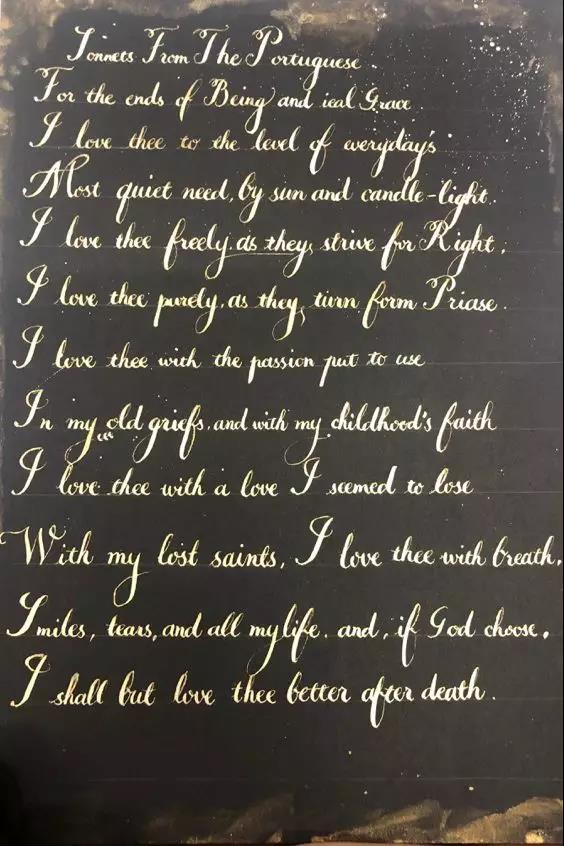 Sonnets From The Portuguese
For the ends of Being and ieal Grace
I love thee to the level of everyday's
Most quiet need, by sun and candle-light.
I love thee freely, as they, strive for Right;
I love thee purely, as they, turn form Priase.
I love thee with the passion put to use
In my old griefs, and with my childhood's faith
I love thee with a love I seemed to lose
With my lost saints, I love thee with breath,
Smiles, tears, and all my life. and, if God choose,
I shall but love thee better after death.